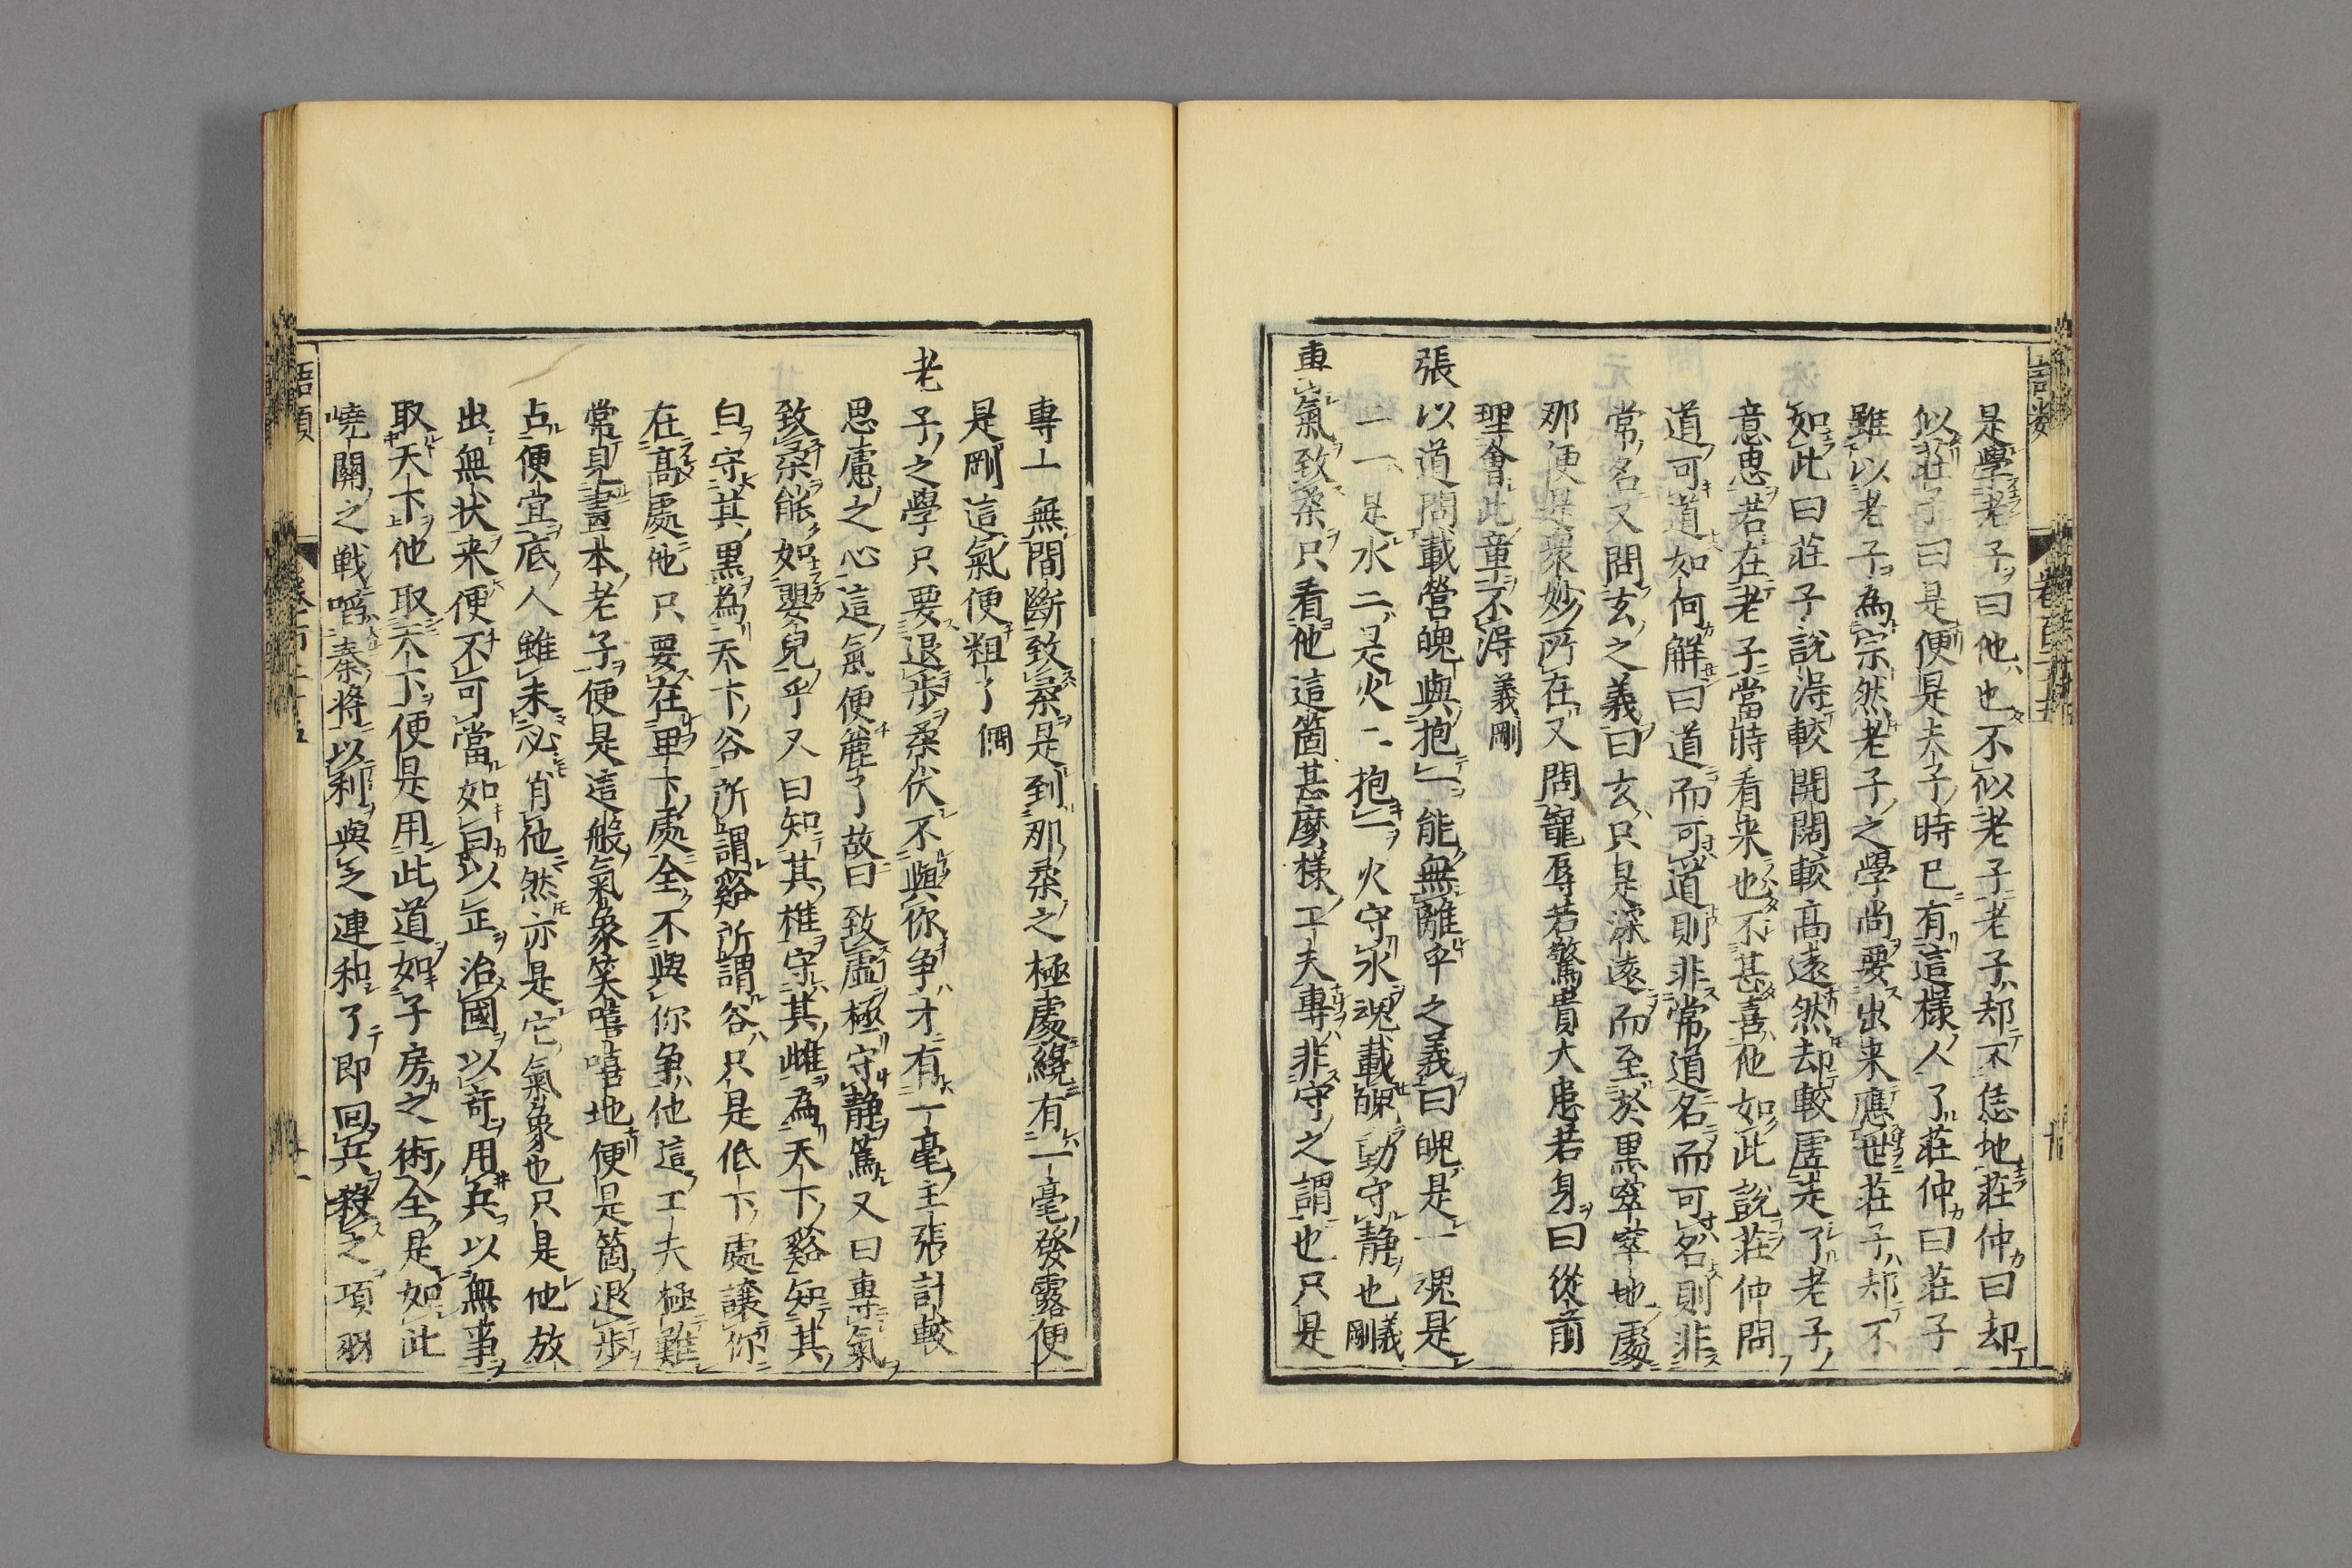 是學老子曰他也不似老子老子却不恁地莊仲曰却
似莊子曰是便是夫子時已有這樣人了莊仲曰莊子
雖以老子為宗然老子之學尚要出来應世莊子却不
如此曰莊子說得較開闊較高遠然却較虛走了老子
意思若在老子當時看来也不甚喜他如此說莊仲問
道可道如何解曰道而可道則非常道名而可名則非
常名又問玄之義曰玄只是深遠而至於黑窣窣地處
那便是衆妙所在又問寵辱若驚貴大患若身曰從前
理會此章不得 義剛
張以道問載營魄與抱一能無離乎之義曰魄是一魂是
二一是水二是火一抱一火守水魂載魄動守静也義剛
專氣致柔只看他這箇甚麼樣工夫專非守之謂也只是
專一無間斷致柔是到那柔之極處纔有一毫發露便
是剛這氣便粗了 僩
老子之學只要退步柔伏不與你争才有一毫主張計較
思慮之心這氣便麄了故曰致虛極守静篤又曰專氣
致柔能如嬰兒乎又曰知其雄守其雌為天下谿知其
白守其黒為天下谷所謂谿所謂谷只是低下處讓你
在高處他只要在卑下處全不與你争他這工夫極難
常見畫本老子便是這般氣象笑嘻嘻地便是箇退步
占便宜底人雖未必肖他然亦是它氣象也只是他放
出無状来便不可當如曰以正治國以奇用兵以無事
取天下他取天下便是用此道如子房之術全是如此
嶢關之戰啗秦將以利與之連和了即回兵殺之項羽